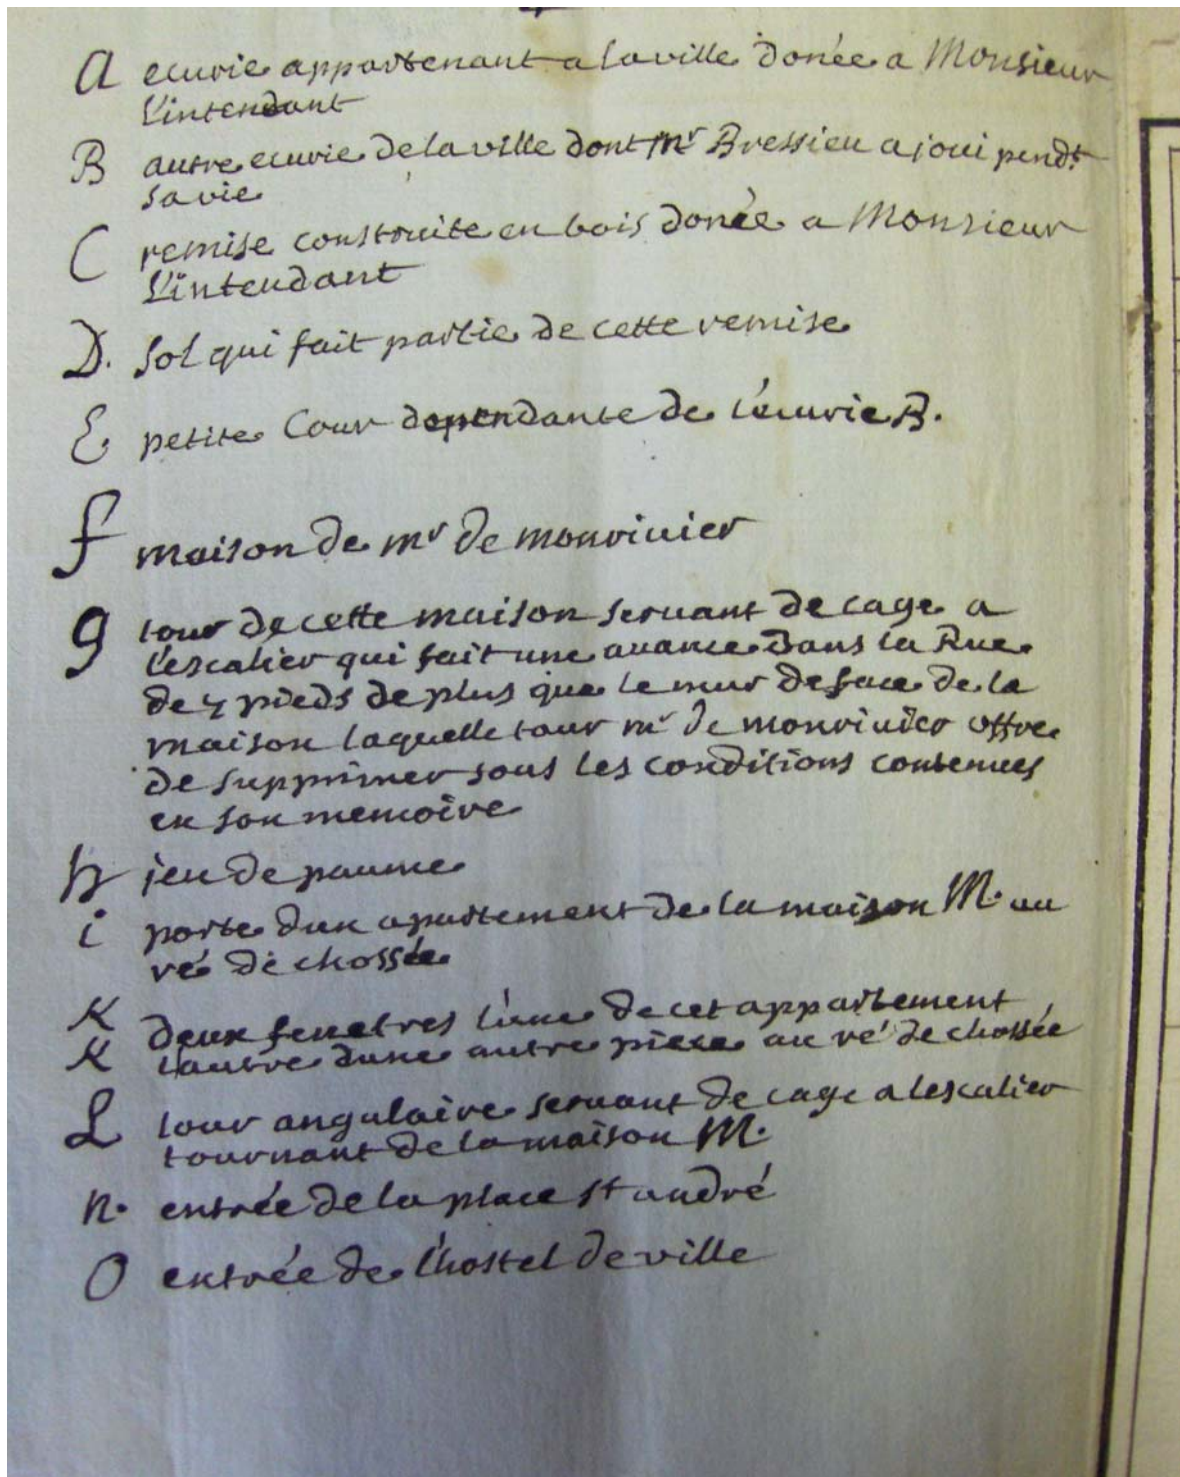 A ecurie appartenant a la ville donée a Monsieur
L'intendant
B autre ecurie de la ville dont Mr Bressieu a joui pendt
sa vie
C remise construite en bois donée a Monsieur
L'intendant
D. sol qui fait partie de cette remise
E petite Cour dependante de l'écurie B.
f maison de mr de monrivier
g tour de cette maison servant de cage a
l'escalier qui fait une avance dans la Rue
de 4 pieds de plus que le mur de face de la
maison laquelle tour mr de monrivier offre
de supprimer sous les conditions contenues
en son memoire
h jeu de paume
i porte dun apartement de la maison M. au
ré de chossée
K deux fenetres l'une de cet appartement
K l'autre dune autre piece au ré de chossée
L tour angulaire servant de cage a lescalier
tournant de la maison M.
n. entrée de la place st andré
O entrée de l'hostel de ville